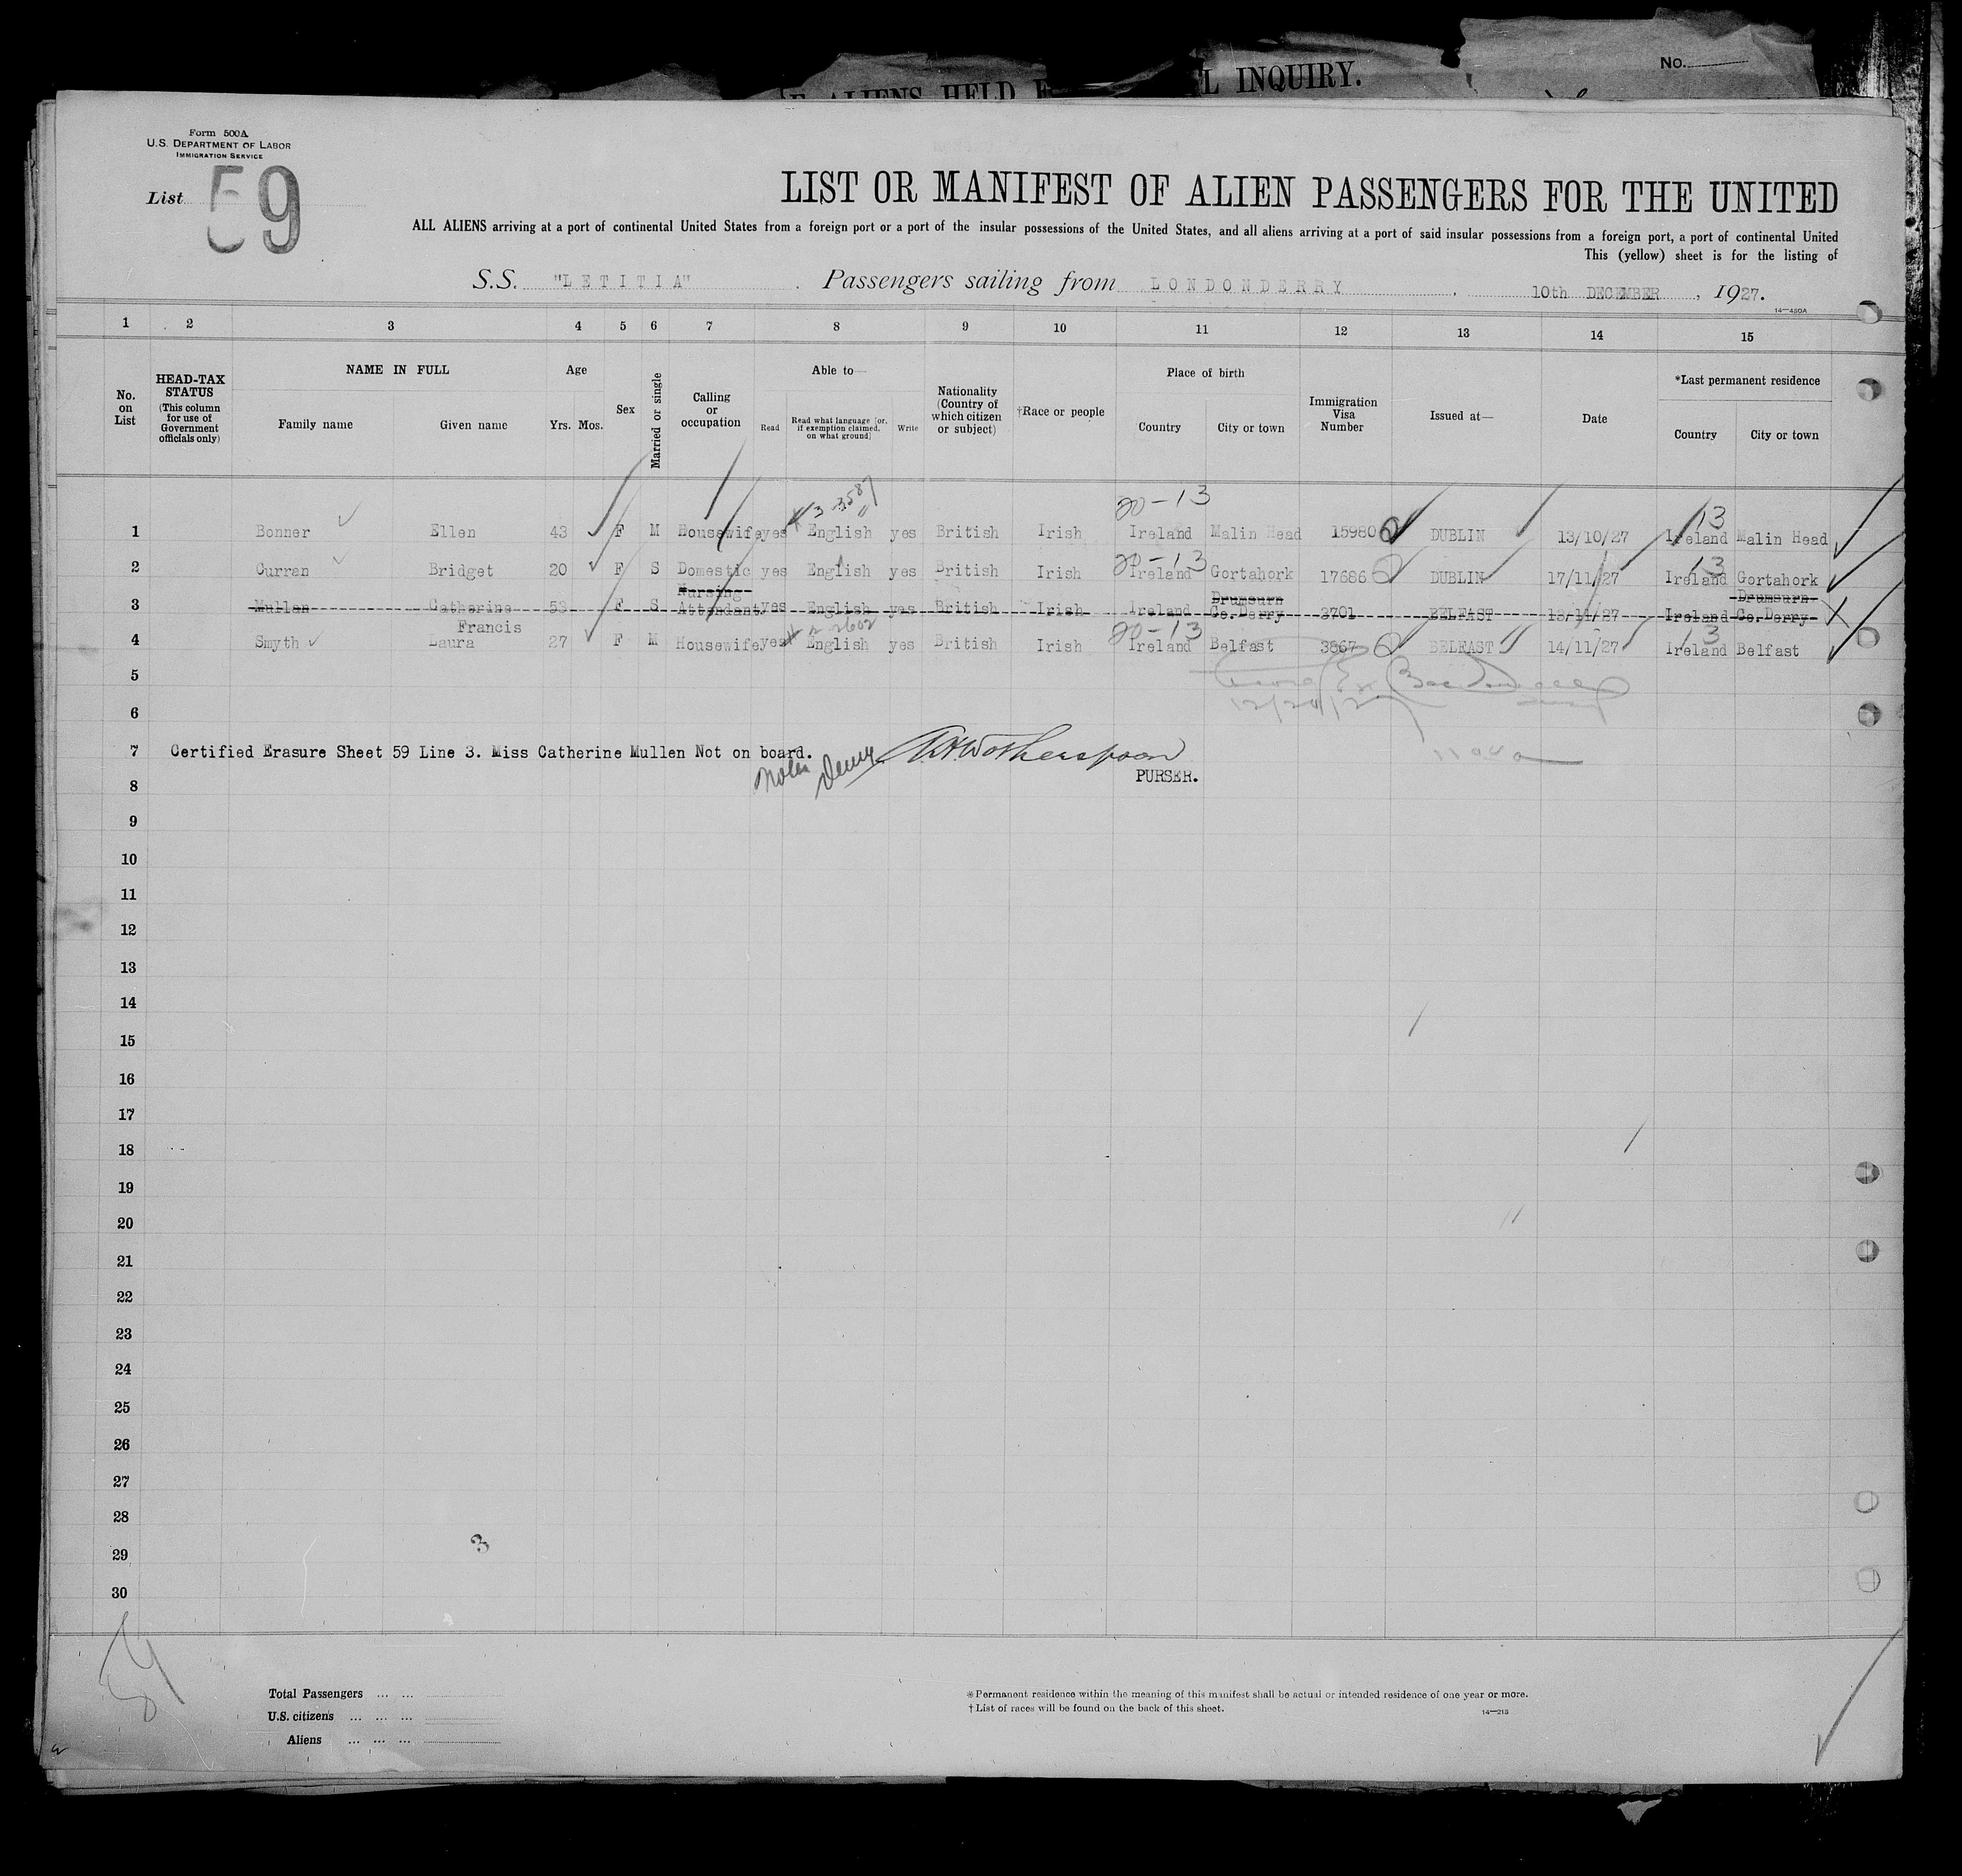 No.
E ALIENS HELD F L INQUIRY.
Form 500A
U.S. DEPARTMENT OF LABOR
IMMIGRATION SERVICE
List 59
LIST OR MANIFEST OF ALIEN PASSENGERS FOR THE UNITED
ALL ALIENS arriving at a port of continental United States from a foreign port or a port of the insular possessions of the United States, and all aliens arriving at a port of said insular possessions from a foreign port, a port of continental United
This (yellow) sheet is for the listing of
S.S. "LETITIA" . Passengers sailing from LONDONDERRY . 10th DECEMBER , 1927.
14—430A
1 2 3 4 5 6 7 8 9 10 11 12 13 14 15
No. on List
HEAD-TAX STATUS (This column for use of Government officials only)
NAME IN FULL
Family name Given name
Age
Yrs. Mos.
Sex
Married or single
Calling or occupation
Able to—
Read Read what language [or, if exemption claimed, on what ground] Write
Nationality (Country of which citizen or subject)
†Race or people
Place of birth
Country City or town
Immigration Visa Number
Issued at—
Date
*Last permanent residence
Country City or town
3-3587
20-13 13
1 Bonner Ellen 43 F M Housewife yes English yes British Irish Ireland Malin Head 15980 DUBLIN 13/10/27 Ireland Malin Head
20-13 13
2 Curran Bridget 20 F S Domestic yes English yes British Irish Ireland Gortahork 17686 DUBLIN 17/11/27 Ireland Gortahork
Nursing Drumsurn Drumsurn
3 Mullen Catherine 53 F S Attendant yes English yes British Irish Ireland Co.Derry 3701 BELFAST Ireland Co.Derry
Francis 2-2602 20-13 13
4 Smyth Laura 27 F M Housewife yes English yes British Irish Ireland Belfast 3867 BELFAST 14/11/27 Ireland Belfast
5
6
7 Certified Erasure Sheet 59 Line 3. Miss Catherine Mullen Not on board. Wotherspoon
8 PURSER.
9
10
11
12
13
14
15
16
17
18
19
20
21
22
23
24
25
26
27
28
3
29
30
Total Passengers ... ...
U.S. citizens ... ... ...
Aliens ... ... ...
*Permanent residence within the meaning of this manifest shall be actual or intended residence of one year or more.
†List of races will be found on the back of this sheet.
14—213